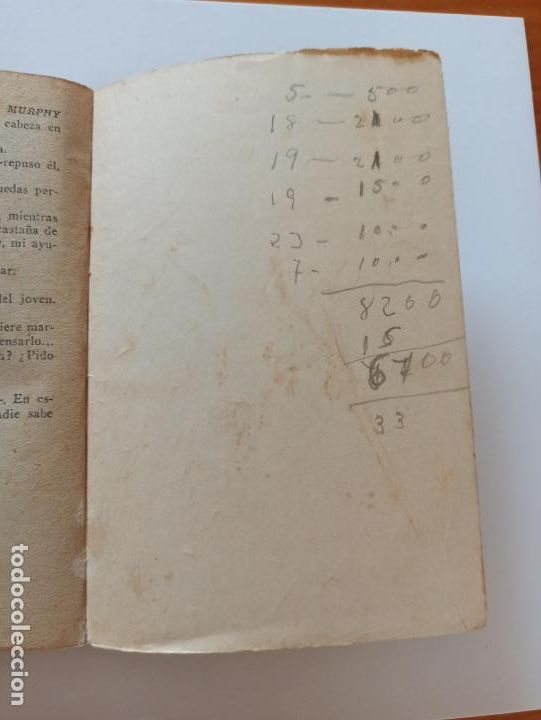 MURPHY
cabeza en
a.
-repuso él.
uedas per-
mientras
astaña de
y, mi ayu-
ar.
del joven.
iere mar-
ensarlo...
a? ¿Pido
-. En es-
adie sabe
5- — 500
18 — 2100
19 — 2100
19 - 1500
23 - 1000
7- 1000
8200
15
6700
33
todocoleccion